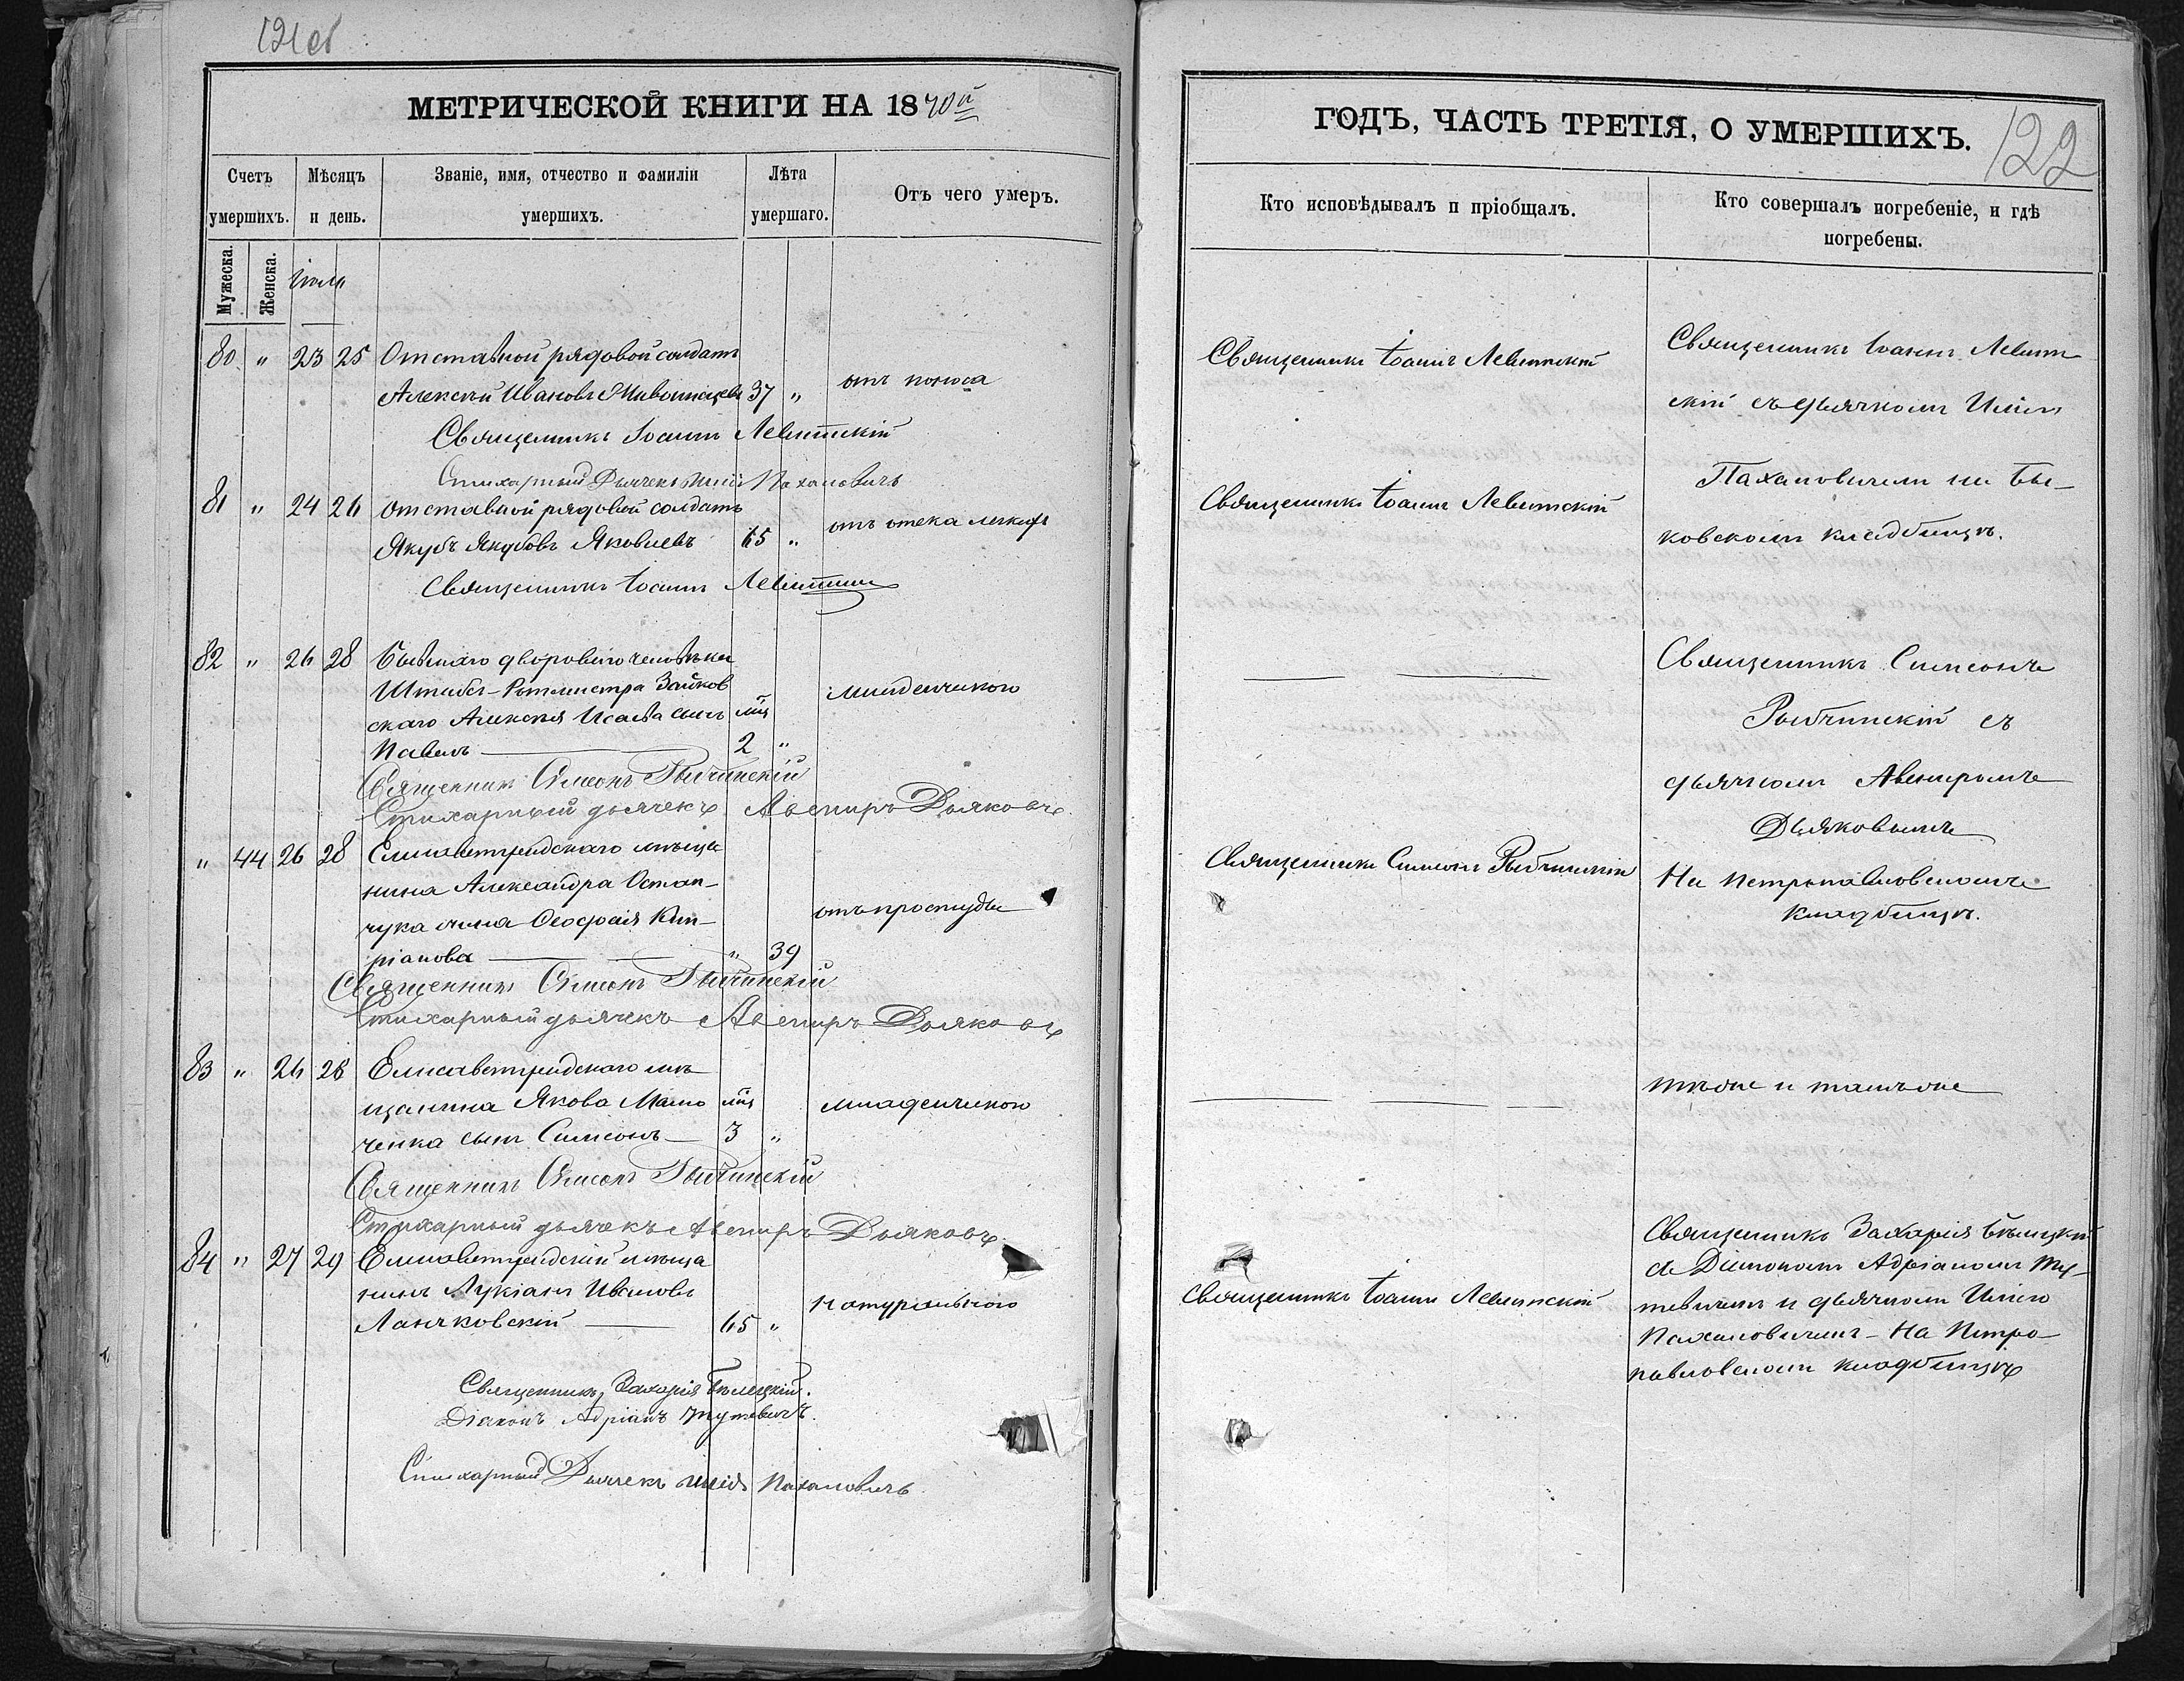 121 об
МЕТРИЧЕСКОЙ КНИГИ НА 1870й
Счетъ умершихъ.
Мѣсяцъ и день.
Званіе, имя, отчество и фамиліи умершихъ.
Лѣта умершаго.
Отъ чего умеръ.
Мужеска.
Женска.
Іюль
80 " 23 25 Отставной рядовой солдатъ
Алексѣй Ивановъ 37 " отъ поноса
Священникъ Іоаннъ Левитскій
Стихарный Дьячекъ Илія Пахановичъ
81 " 24 26 Отставной рядовой солдатъ
Якубъ Якубовъ Яковлевъ 65 " отъ отека легкихъ
Священникъ Іоаннъ Левитскій
82 " 26 28 Бывшаго двороваго человѣка
Штабсъ-Ротмистра Занков
скаго Алексѣя Исаева сынъ мц младенческою
Павелъ 2 "
Священникъ Симеонъ Рыбчинскій
Стихарный дьячекъ Авениръ Дьяковъ.
" 44 26 28 Елисаветградскаго мѣща
нина Александра Остап-
чука жена Феофанія Кип- отъ простуды
ріанова " 39
Священникъ Симеонъ Рыбчинскій
Стихарный дьячекъ Авениръ Дьяковъ
83 " 26 28 Елисаветградскаго мѣ
щанина Якова мц младенческою
ченка сынъ Симеонъ 3 "
Священникъ Симеонъ Рыбчинскій
Стихарный дьячекъ Авениръ Дьяковъ
84 " 27 29 Елисаветградскій мѣща
нинъ Лукіанъ Ивановъ натуральною
Ланчковскій 65 "
Священникъ Захарія Бѣлецкій.
Діаконъ Адріанъ Тутевичъ.
Стихарный Дьячекъ Илія Пахановичъ
ГОДЪ, ЧАСТЬ ТРЕТІЯ, О УМЕРШИХЪ.
122
Кто исповѣдывалъ и пріобщалъ.
Кто совершалъ погребеніе, и гдѣ погребены.
Священникъ Іоаннъ Левитскій
Священникъ Іоаннъ Левит
скій съ дьячкомъ Иліею
Пахановичемъ на Бы-
ковскомъ кладбищѣ.
Священникъ Іоаннъ Левитскій
Священникъ Симеонъ
Рыбчинскій съ
дьячкомъ Авениромъ
Дьяковымъ
На Петропавловскомъ
кладбищѣ.
Священникъ Симеонъ Рыбчинскій
тѣ же и тамъ же
Священникъ Іоаннъ Левитскій
Священникъ Захарія Бѣлецкій
съ Діакономъ Адріаномъ Ту-
тевичемъ и дьячкомъ Иліею
Пахановичемъ - На Петро-
павловскомъ кладбищѣ